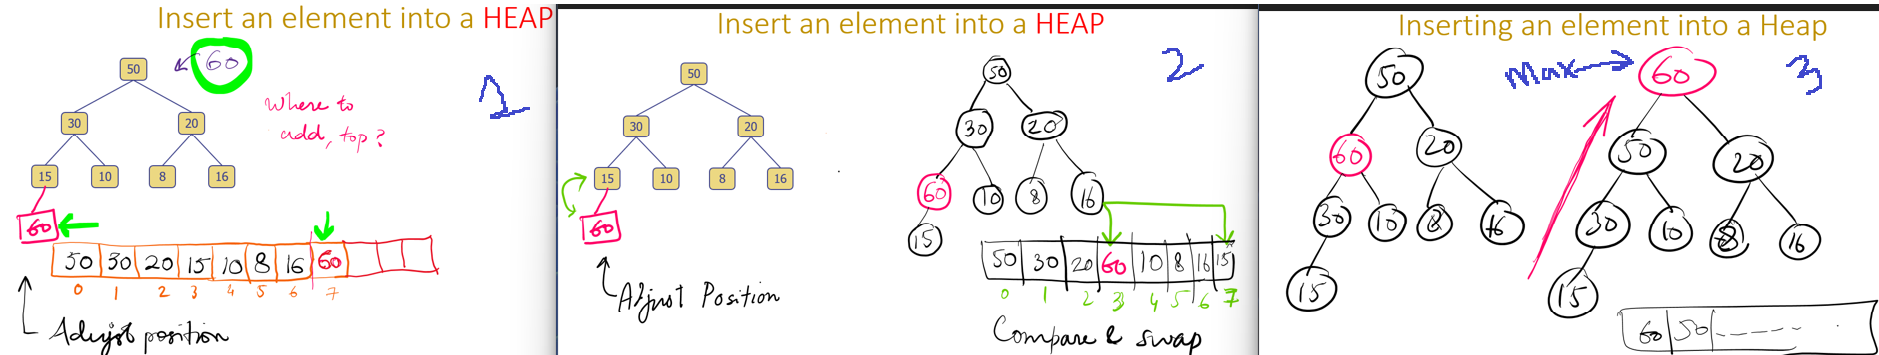 Insert an element into a HEAP
1
50
60
Where to
add, top?
30 20
15 10 8 16
60
50 30 20 15 10 8 16 60
0 1 2 3 4 5 6 7
Adujst position
Insert an element into a HEAP
2
50
30 20
15 10 8 16
60
Adjust Position
50
30 20
60 10 8 16
15
50 30 20 60 10 8 16 15
0 1 2 3 4 5 6 7
Compare & swap
Inserting an element into a Heap
3
50
60 20
30 10 8 16
15
Max
60
50 20
30 10 8 16
15
60 50